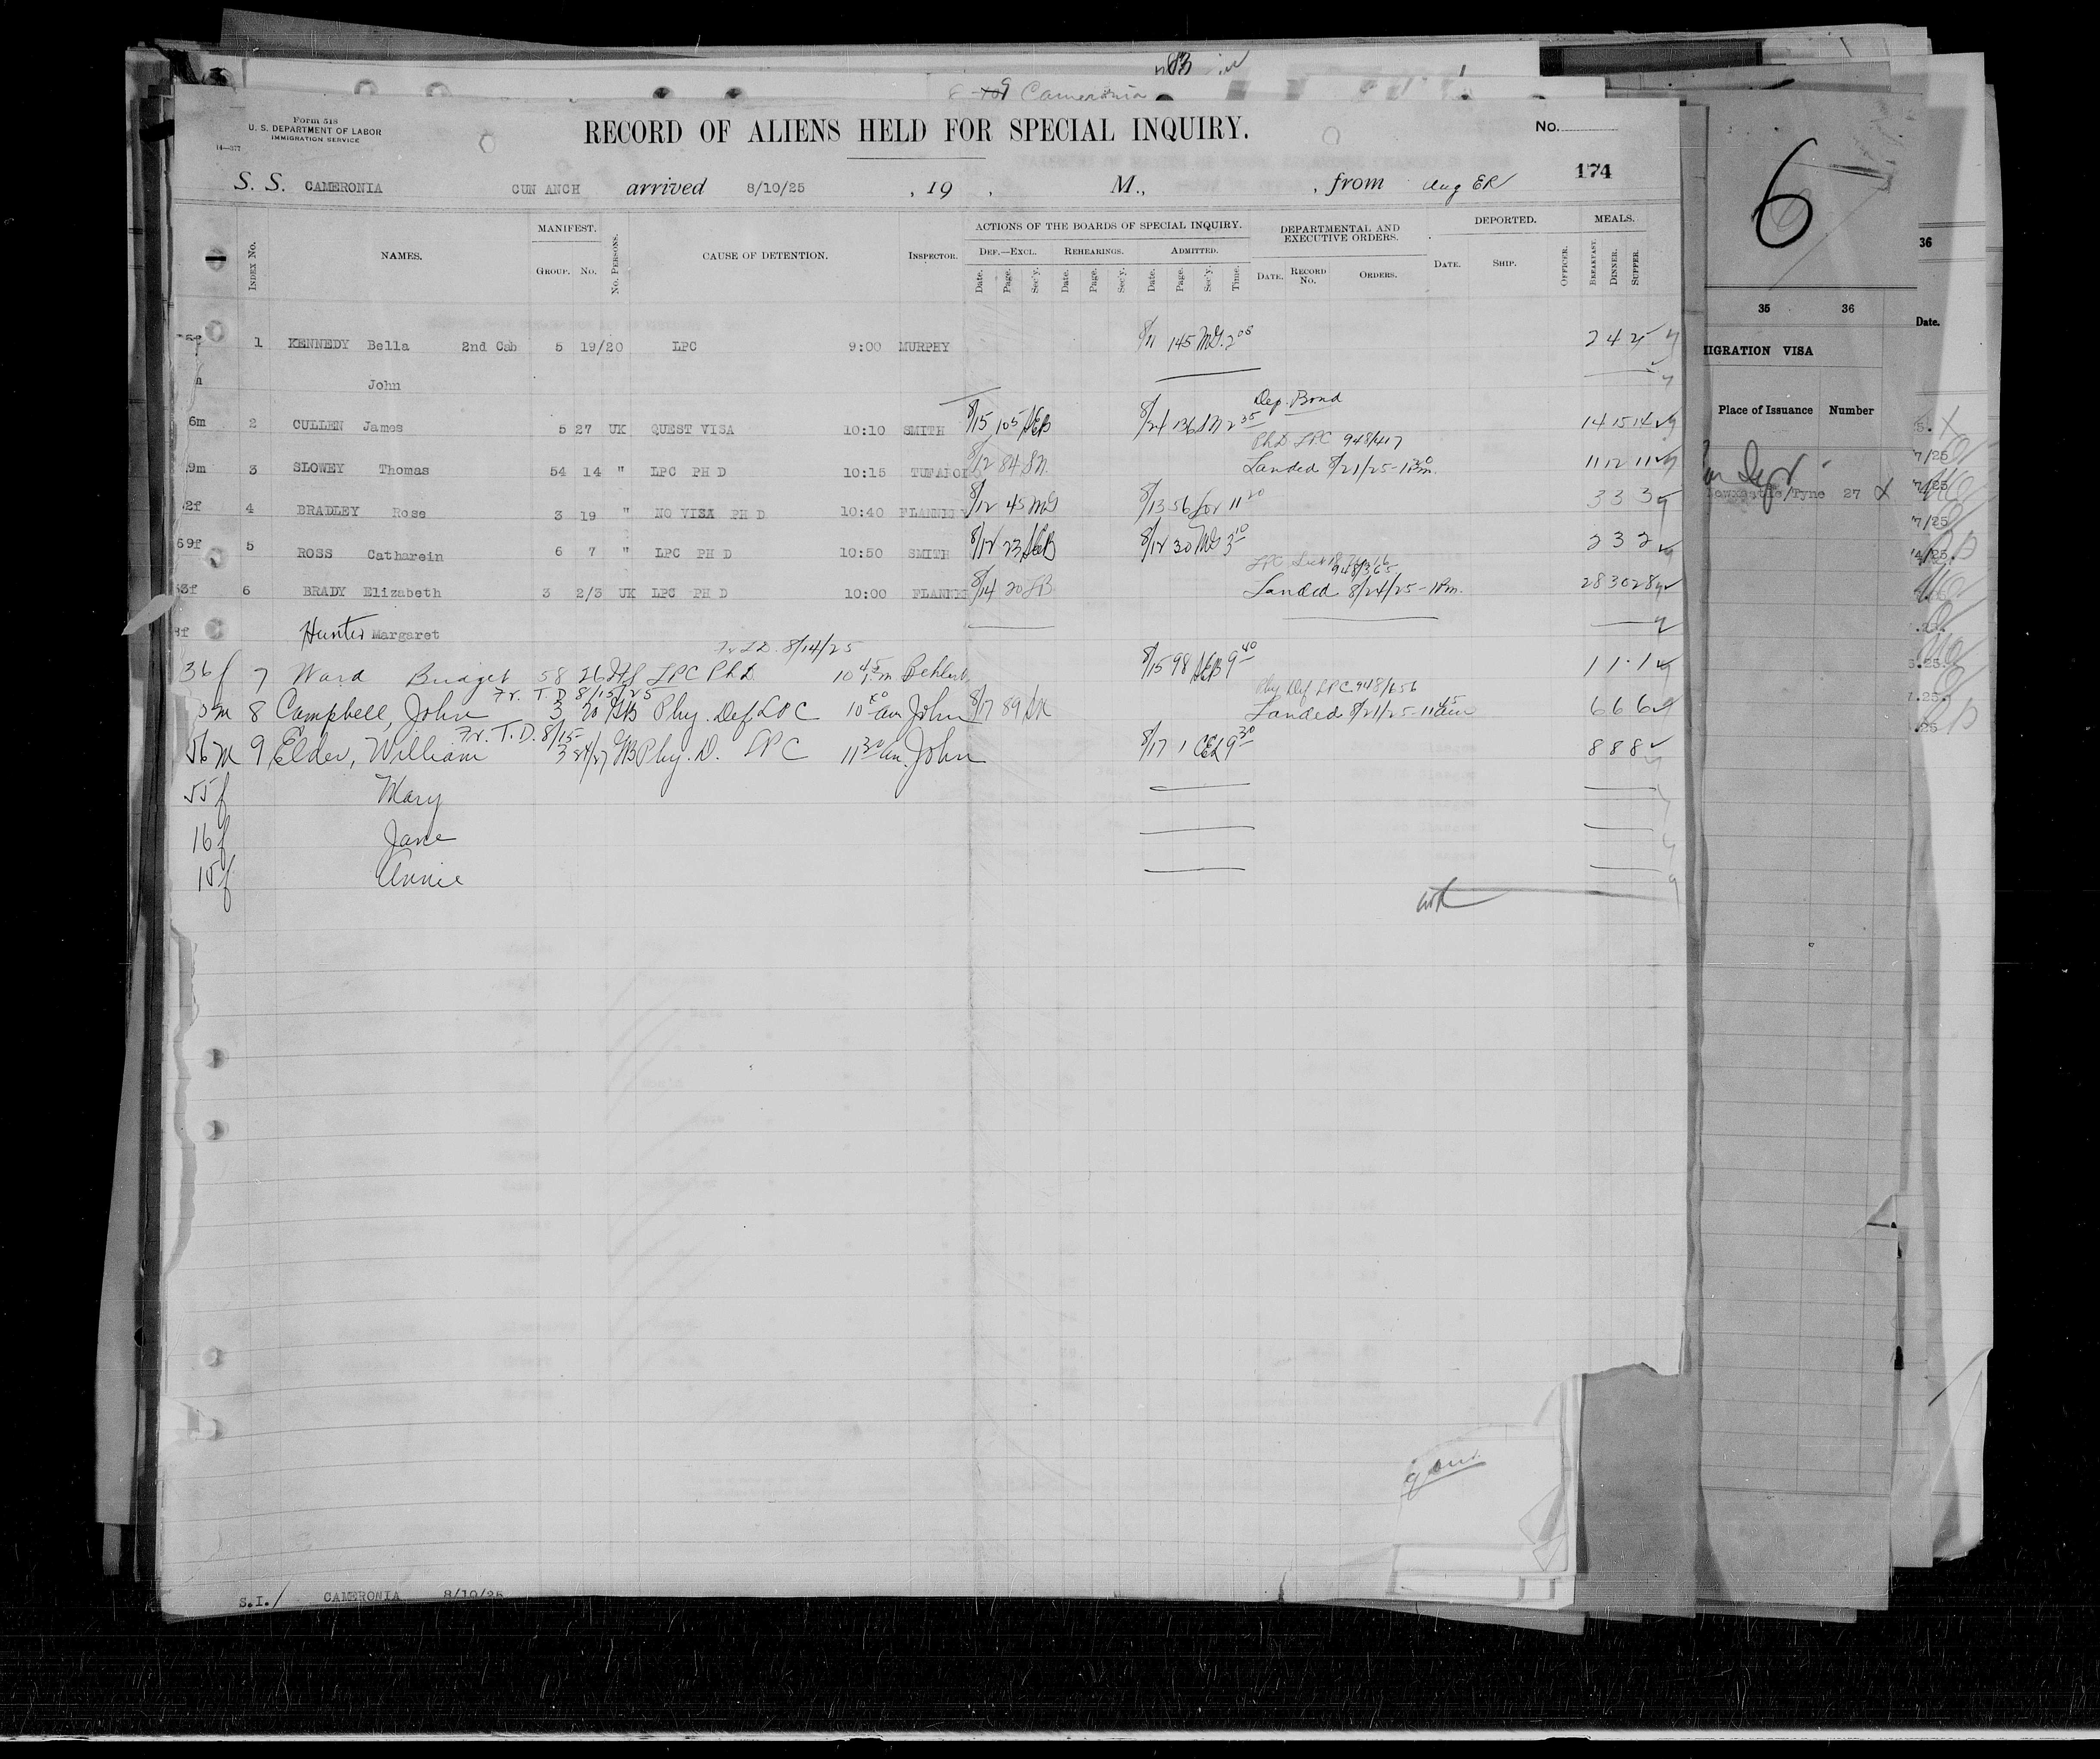 Cameronia
Form 518
U. S. DEPARTMENT OF LABOR
IMMIGRATION SERVICE
14—377
RECORD OF ALIENS HELD FOR SPECIAL INQUIRY.
No.
174
S. S. CAMERONIA CUN ANCH arrived 8/10/25 , 19 , M., , from Aug ER
INDEX No. NAMES. MANIFEST. GROUP. No. No. PERSONS. CAUSE OF DETENTION. INSPECTOR. ACTIONS OF THE BOARDS OF SPECIAL INQUIRY. DEPARTMENTAL AND EXECUTIVE ORDERS. DEPORTED. MEALS.
DEF.—EXCL. REHEARINGS. ADMITTED.
Date. Page. Sec'y. Date. Page. Sec'y. Date. Page. Sec'y. Time. DATE. RECORD No. ORDERS. DATE. SHIP. OFFICER. BREAKFAST. DINNER. SUPPER.
1 KENNEDY Bella 2nd Cab 5 19/20 LPC 9:00 MURPHY 8/11 145 MG. 2 05 2 4 2
John
Dep. Bond
6m 2 CULLEN James 5 27 UK QUEST VISA 10:10 SMITH 8/15 105 8/21 136 SN 2 35 14 15 14
PhD LPC 948/417
9m 3 SLOWEY Thomas 54 14 " LPC PH D 10:15 8/12 84 SN. Landed 8/21/25 - 1 30 Pm. 11 12 11
2f 4 BRADLEY Rose 3 19 " NO VISA PH D 10:40 8/12 45 MG 8/13 56 11 20 3 3 3
59f 5 ROSS Catharein 6 7 " LPC PH D 10:50 SMITH 8/12 23 8/12 30 MG 3 10 2 3 2
948/365
3f 6 BRADY Elizabeth 3 2/3 UK LPC PH D 10:00 8/14 20 Landed 8/24/25 - 1 Pm. 28 30 28
Hunter Margaret
8/14/25
36 f 7 Ward Bridget 58 26 LPC PhD 10 45 8/15 98 9 40 1 1 1
Fr. T. D 8/15/25
Phy Def LPC 948/656
m 8 Campbell, John 3 20 Phy. Def LPC 10 am John 8/17 89 SN Landed 8/21/25 - 11 45 am 6 6 6
Fr. T. D. 8/15
56 m 9 Elder, William 3 24/27 Phy. D. LPC 11 30 am. John 8/17 1 9 30 8 8 8
55 f Mary
16 f Jane
15 f Annie
S.I./ CAMERONIA 8/10/25
6
35 36
MIGRATION VISA
Place of Issuance Number
Newcastle/Tyne 27
36
Date.
7/25
7/25
7/25
4/25.